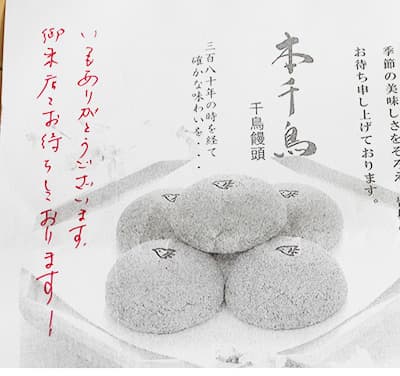 季節の美味しさをそろえ
お待ち申し上げております。
本千鳥
千鳥饅頭
三百八十年の時を経て
確かな味わいを・・・
いつもありがとうございます。
御来店お待ちしております!